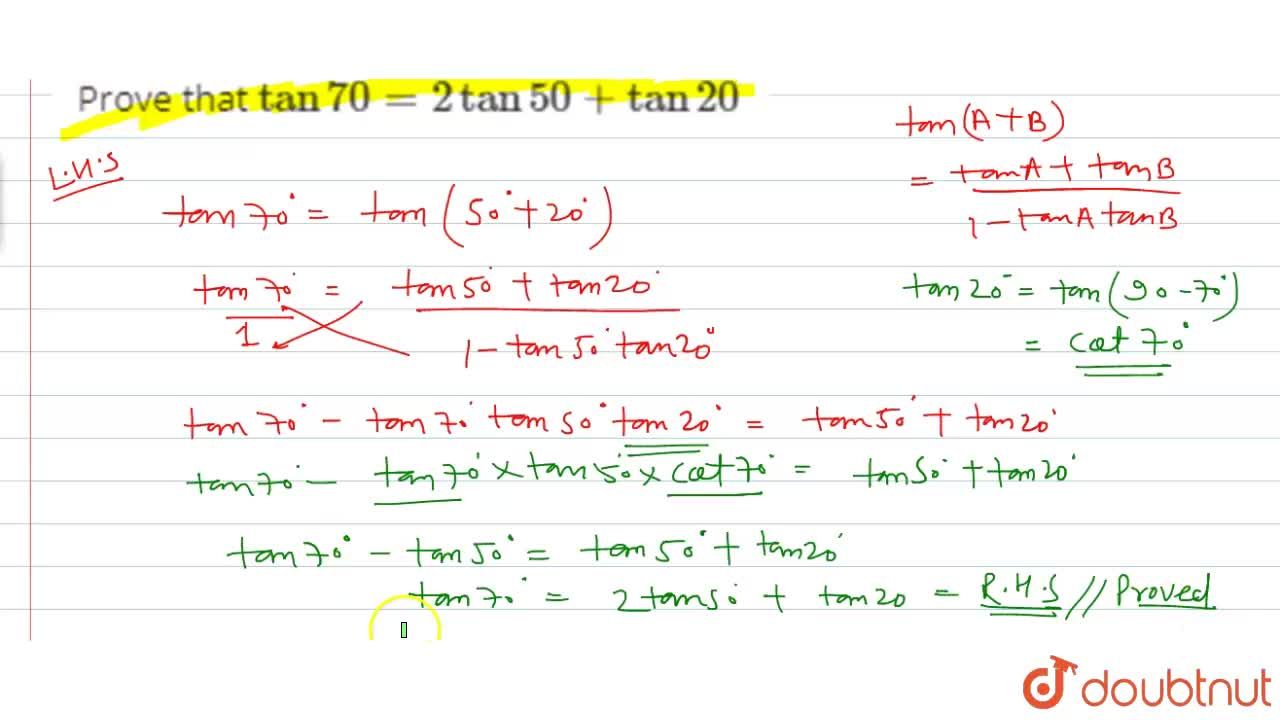 Prove that tan 70 = 2 tan 50 + tan 20
L.H.S
tan 70° = tan (50° + 20°)
tan 70° / 1 = tan 50° + tan 20° / 1 - tan 50° tan 20°
tan 70° - tan 70° tan 50° tan 20° = tan 50° + tan 20°
tan 70° - tan 70° × tan 50° × cot 70° = tan 50° + tan 20°
tan 70° - tan 50° = tan 50° + tan 20°
tan 70° = 2 tan 50° + tan 20 = R.H.S // Proved
tan (A + B)
= tan A + tan B / 1 - tan A tan B
tan 20° = tan (90 - 70°)
= cot 70°
doubtnut